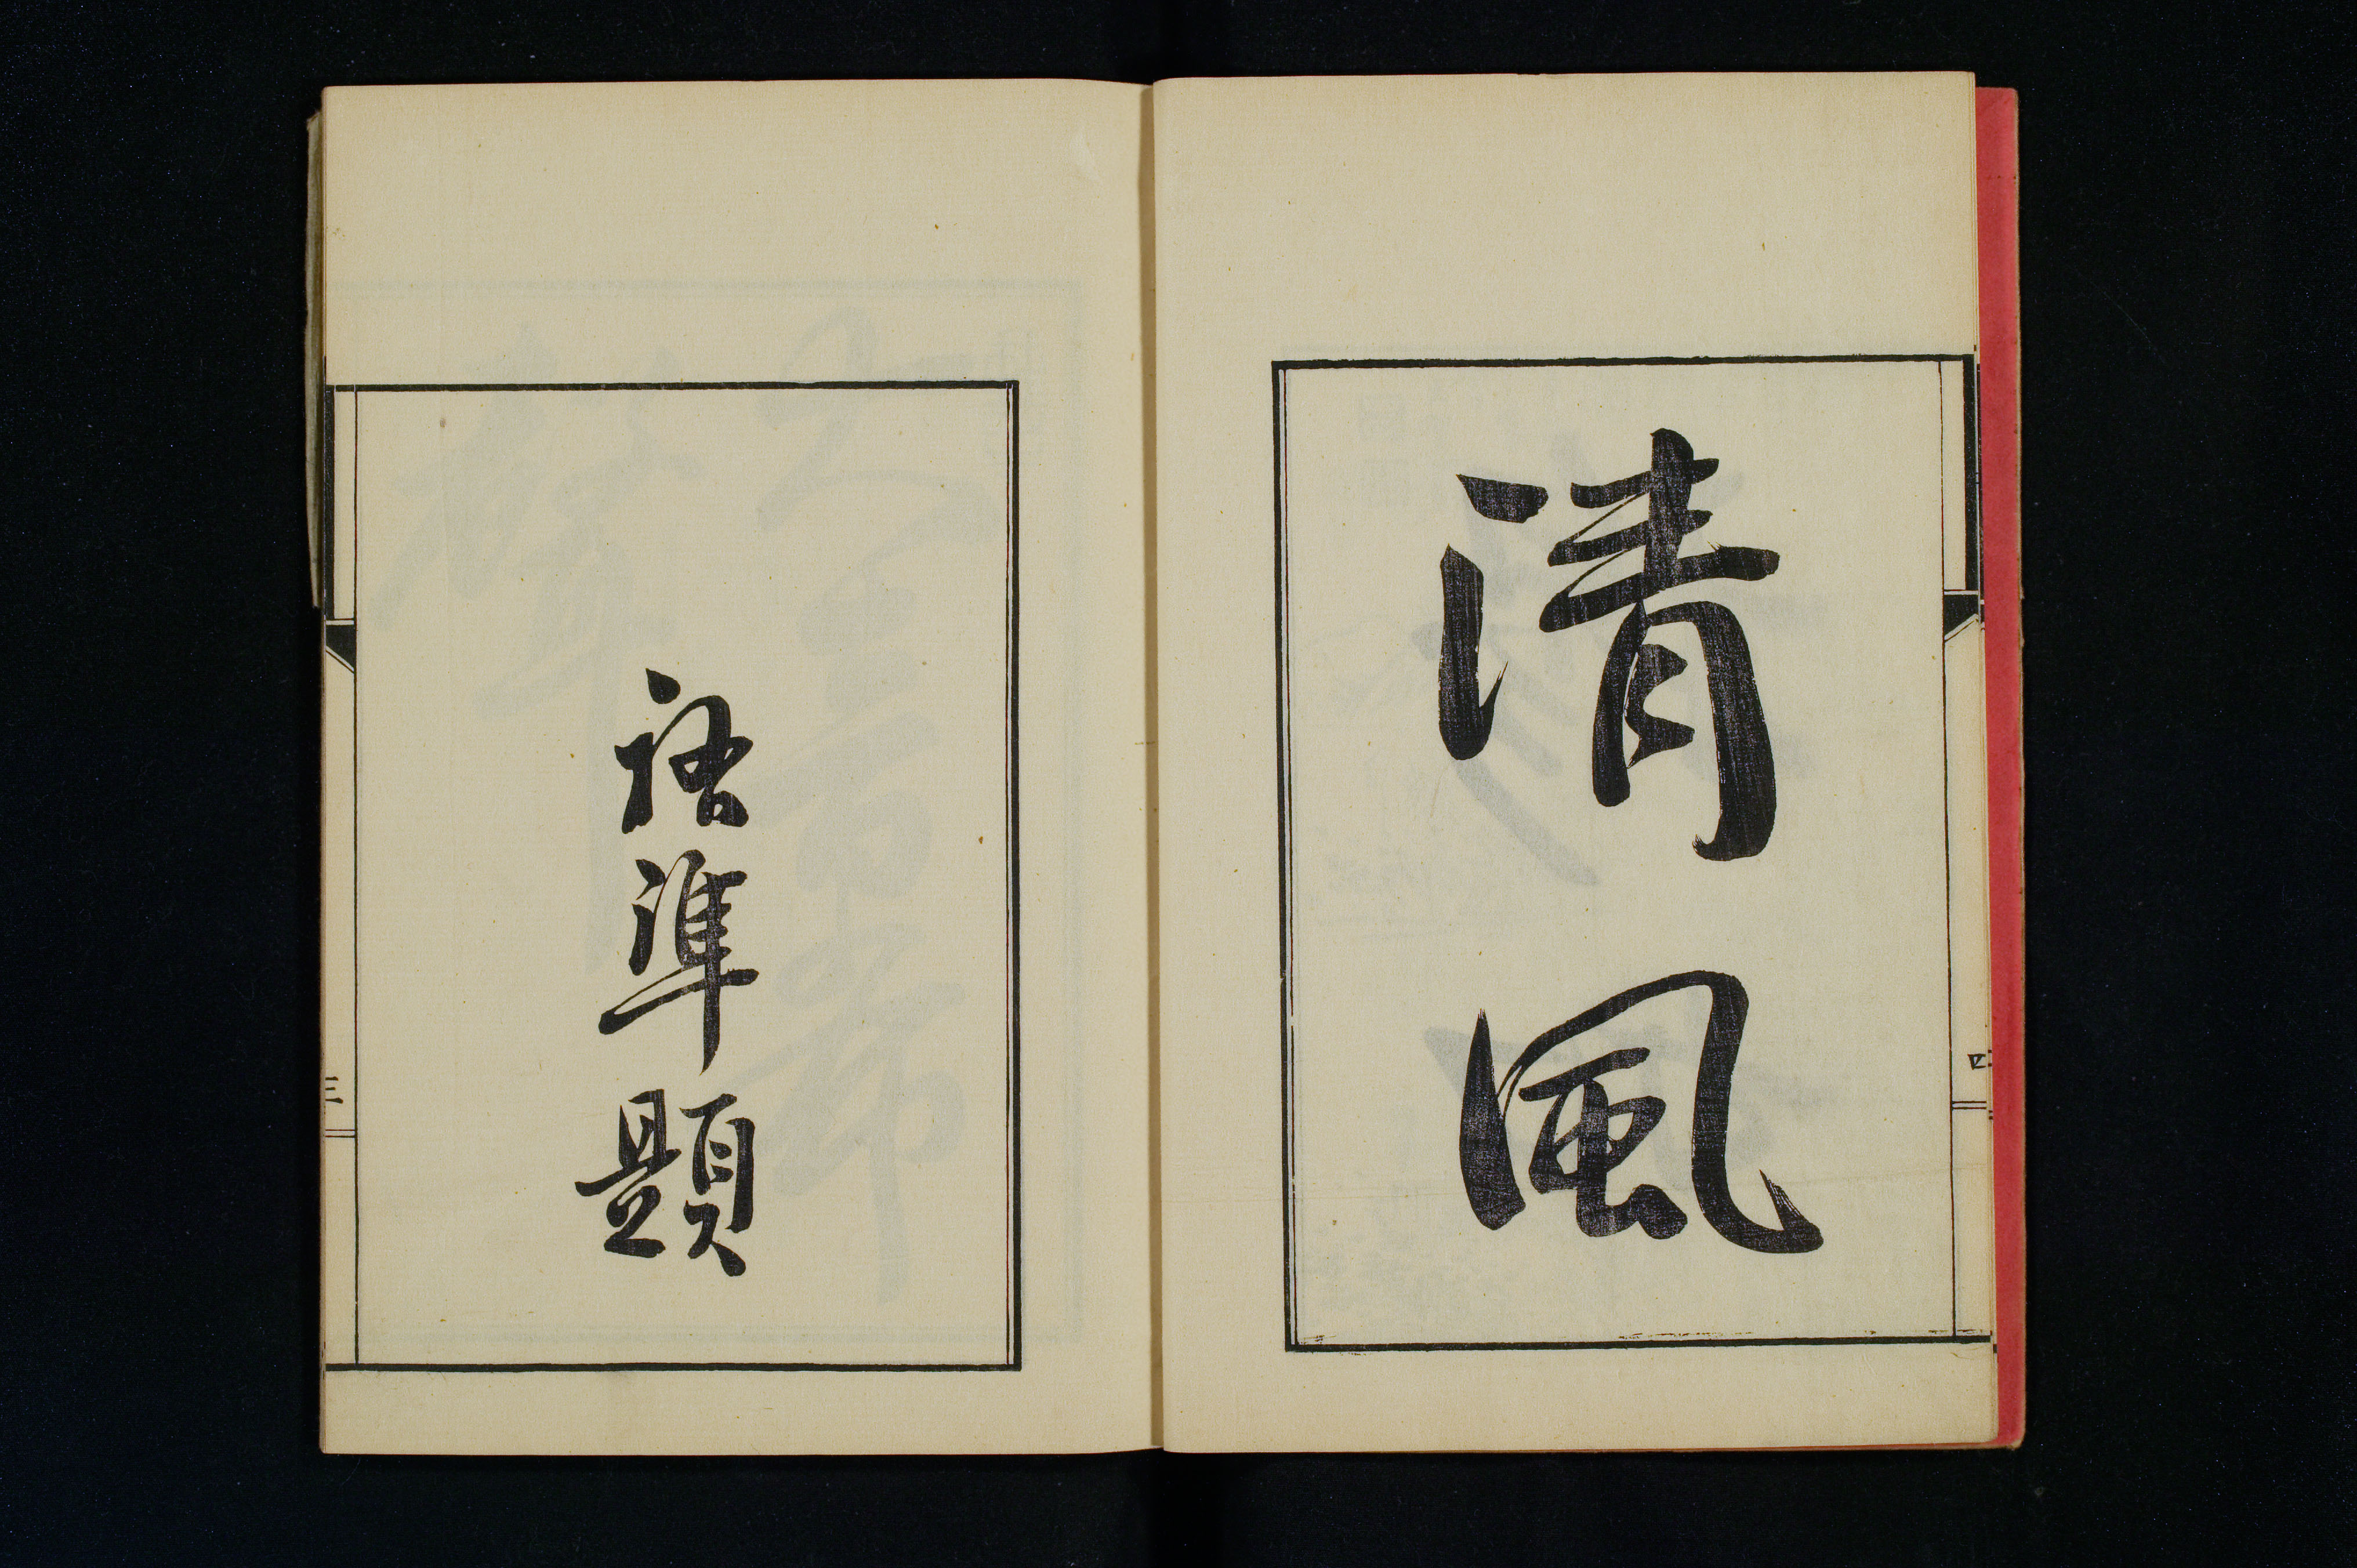 清風
祐準題
三
四